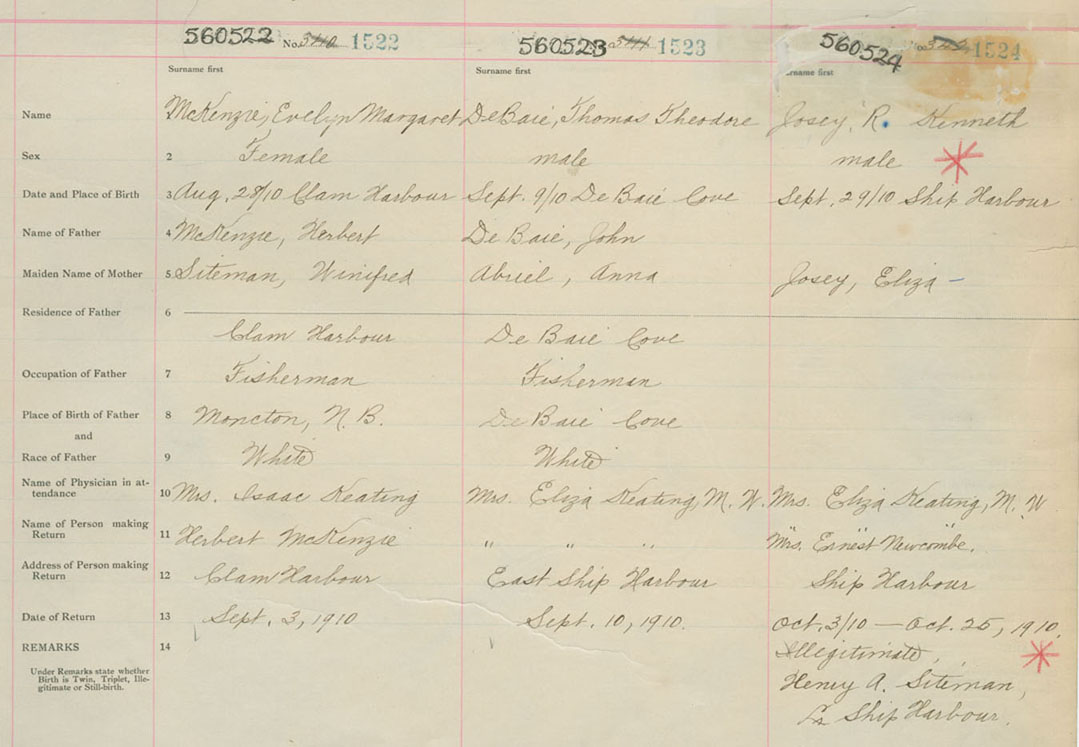 560522 No. 1522 560523 1523 560524 1524
Surname first Surname first Surname first
Name McKenzie, Evelyn Margaret DeBaie, Thomas Theodore Josey, R. Kenneth
Sex 2 Female male male
Date and Place of Birth 3 Aug. 28/10 Clam Harbour Sept. 9/10 De Baie Cove Sept. 29/10 Ship Harbour
Name of Father 4 McKenzie, Herbert De Baie, John
Maiden Name of Mother 5 Siteman, Winifred Abriel, Anna Josey, Eliza –
Residence of Father 6
Clam Harbour De Baie Cove
Occupation of Father 7 Fisherman Fisherman
Place of Birth of Father 8 Moncton, N.B. De Baie Cove
and
Race of Father 9 White White
Name of Physician in at-
tendance 10 Mrs. Isaac Keating Mrs. Eliza Keating, M. W. Mrs. Eliza Keating, M. W
Name of Person making
Return 11 Herbert McKenzie " " " " " Mrs. Ernest Newcombe.
Address of Person making
Return 12 Clam Harbour East Ship Harbour Ship Harbour
Date of Return 13 Sept. 3, 1910 Sept. 10, 1910. Oct. 3/10 — Oct. 25, 1910.
REMARKS 14 Illegitimate,
Under Remarks state whether
Birth is Twin, Triplet, Ille-
gitimate or Still-birth.
Henry A. Siteman,
Ship Harbour.